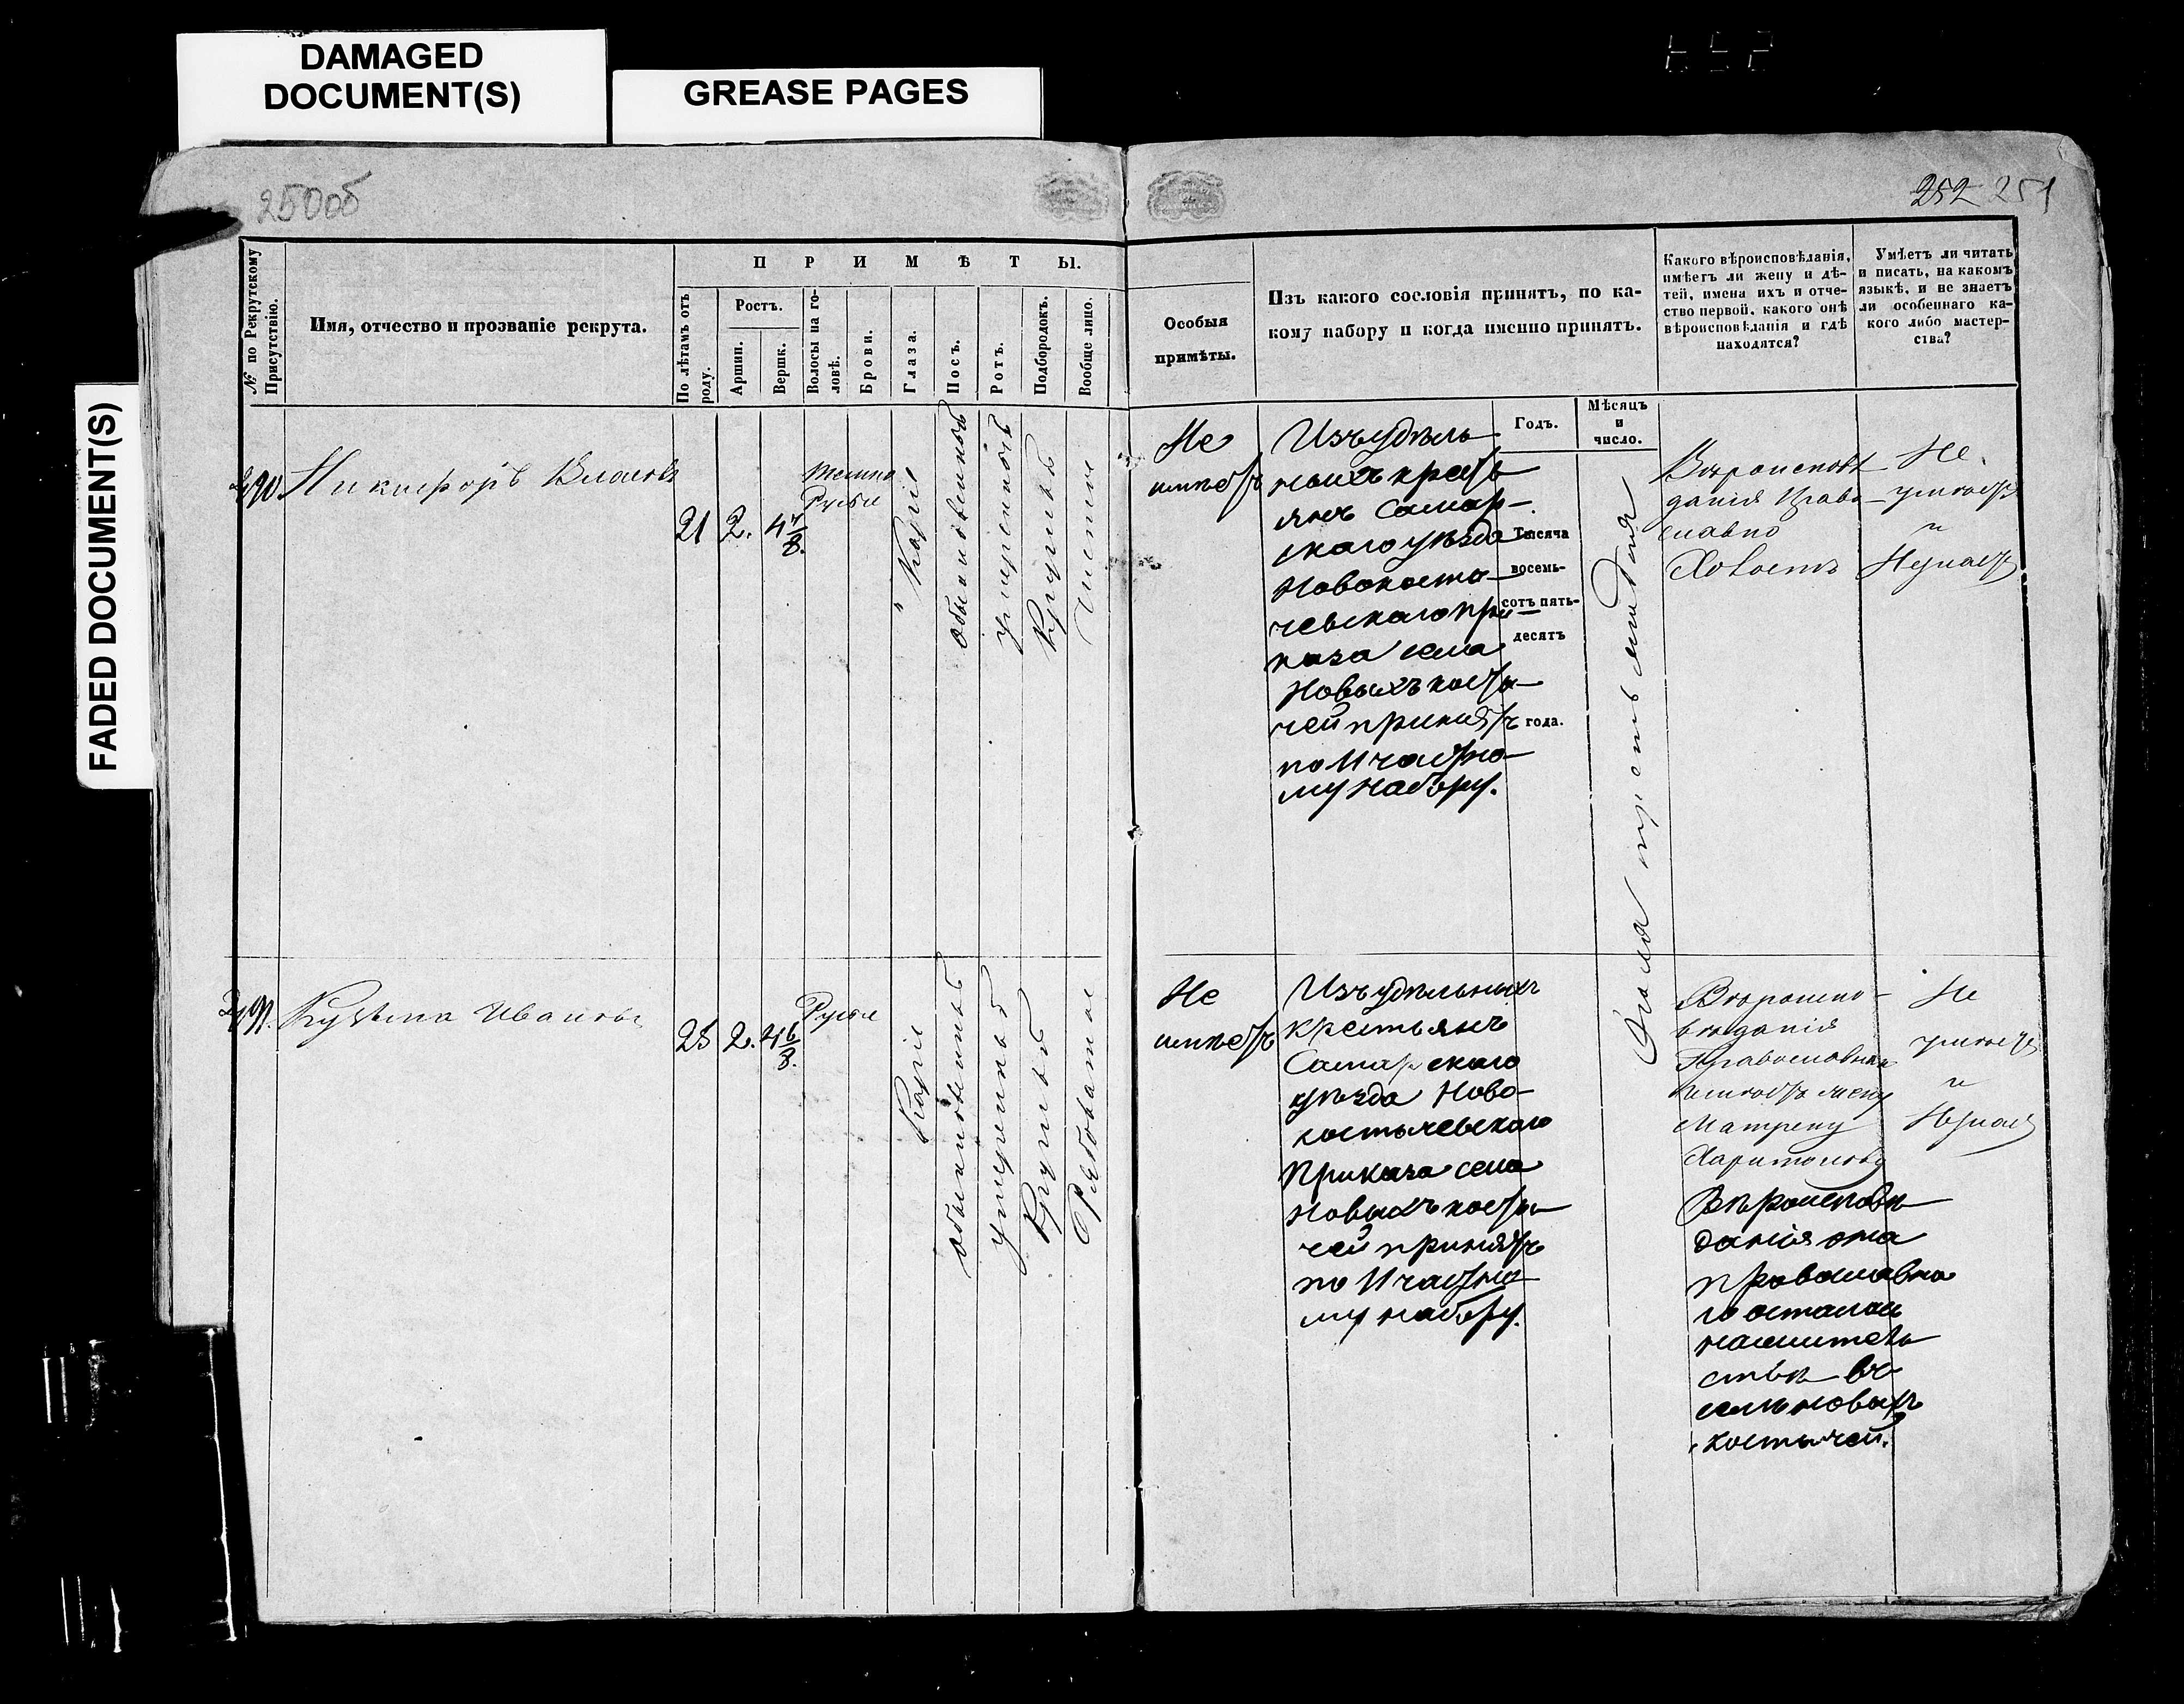 DAMAGED
DOCUMENT(S)
GREASE PAGES
FADED DOCUMENT(S)
250об
252 251
№ по Рекрутскому
Присутствію.
Имя, отчество и прозваніе рекрута.
ПРИМѢТЫ.
По лѣтамъ отъ
роду.
Ростъ.
Аршин.
Вершк.
Волосы на го-
ловѣ.
Брови.
Глаза.
Носъ.
Ротъ.
Подбородокъ.
Вообще лицо.
Особыя
примѣты.
Изъ какого сословія принятъ, по ка-
кому набору и когда именно принятъ.
Какого вѣроисповѣданія,
имѣетъ ли жену и дѣ-
тей, имена ихъ и отче-
ство первой, какого онѣ
вѣроисповѣданія и гдѣ
находятся?
Умѣетъ ли читать
и писать, на какомъ
языкѣ, и не знаетъ
ли особеннаго ка-
кого либо мастер-
ства?
Годъ.
Мѣсяцъ
и
число.
490
Никифоръ Власовъ
21
2.
4 4/8.
темно
Русые
Каріе
обыкновенный
умеренный
Круглый
Чистое
Не
имѣетъ
Изъ удѣль
ныхъ кресть
янъ Самар-
скаго уѣзда
Новокосты-
чевскаго при-
каза села
Новыхъ Косты-
чей принятъ
по 11 частно-
му набору.
Тысяча
восемь-
сотъ пять-
десятъ
года.
Вѣроисповѣ
данія Право-
славно
Холостъ
Не
умѣетъ
и
Незнаетъ
491.
Кузьма Ивановъ
25
2.
4 6/8.
Русые
Каріе
обыкновенный
умеренный
Круглый
Рябоватое
Не
имѣетъ
Изъ удѣльныхъ
крестьянъ
Самарскаго
уѣзда Ново-
костычевскаго
Приказа села
Новыхъ Косты-
чей принятъ
по 11 частно-
му набору.
Вѣроиспо-
вѣданія
Православнаго
имѣетъ жену
Матрену
Харитонову
Вѣроисповѣ
данія она
православна
го осталась
на жительствѣ въ
селѣ Новыхъ
Костычей.
Не
умѣетъ
и
Незнаетъ